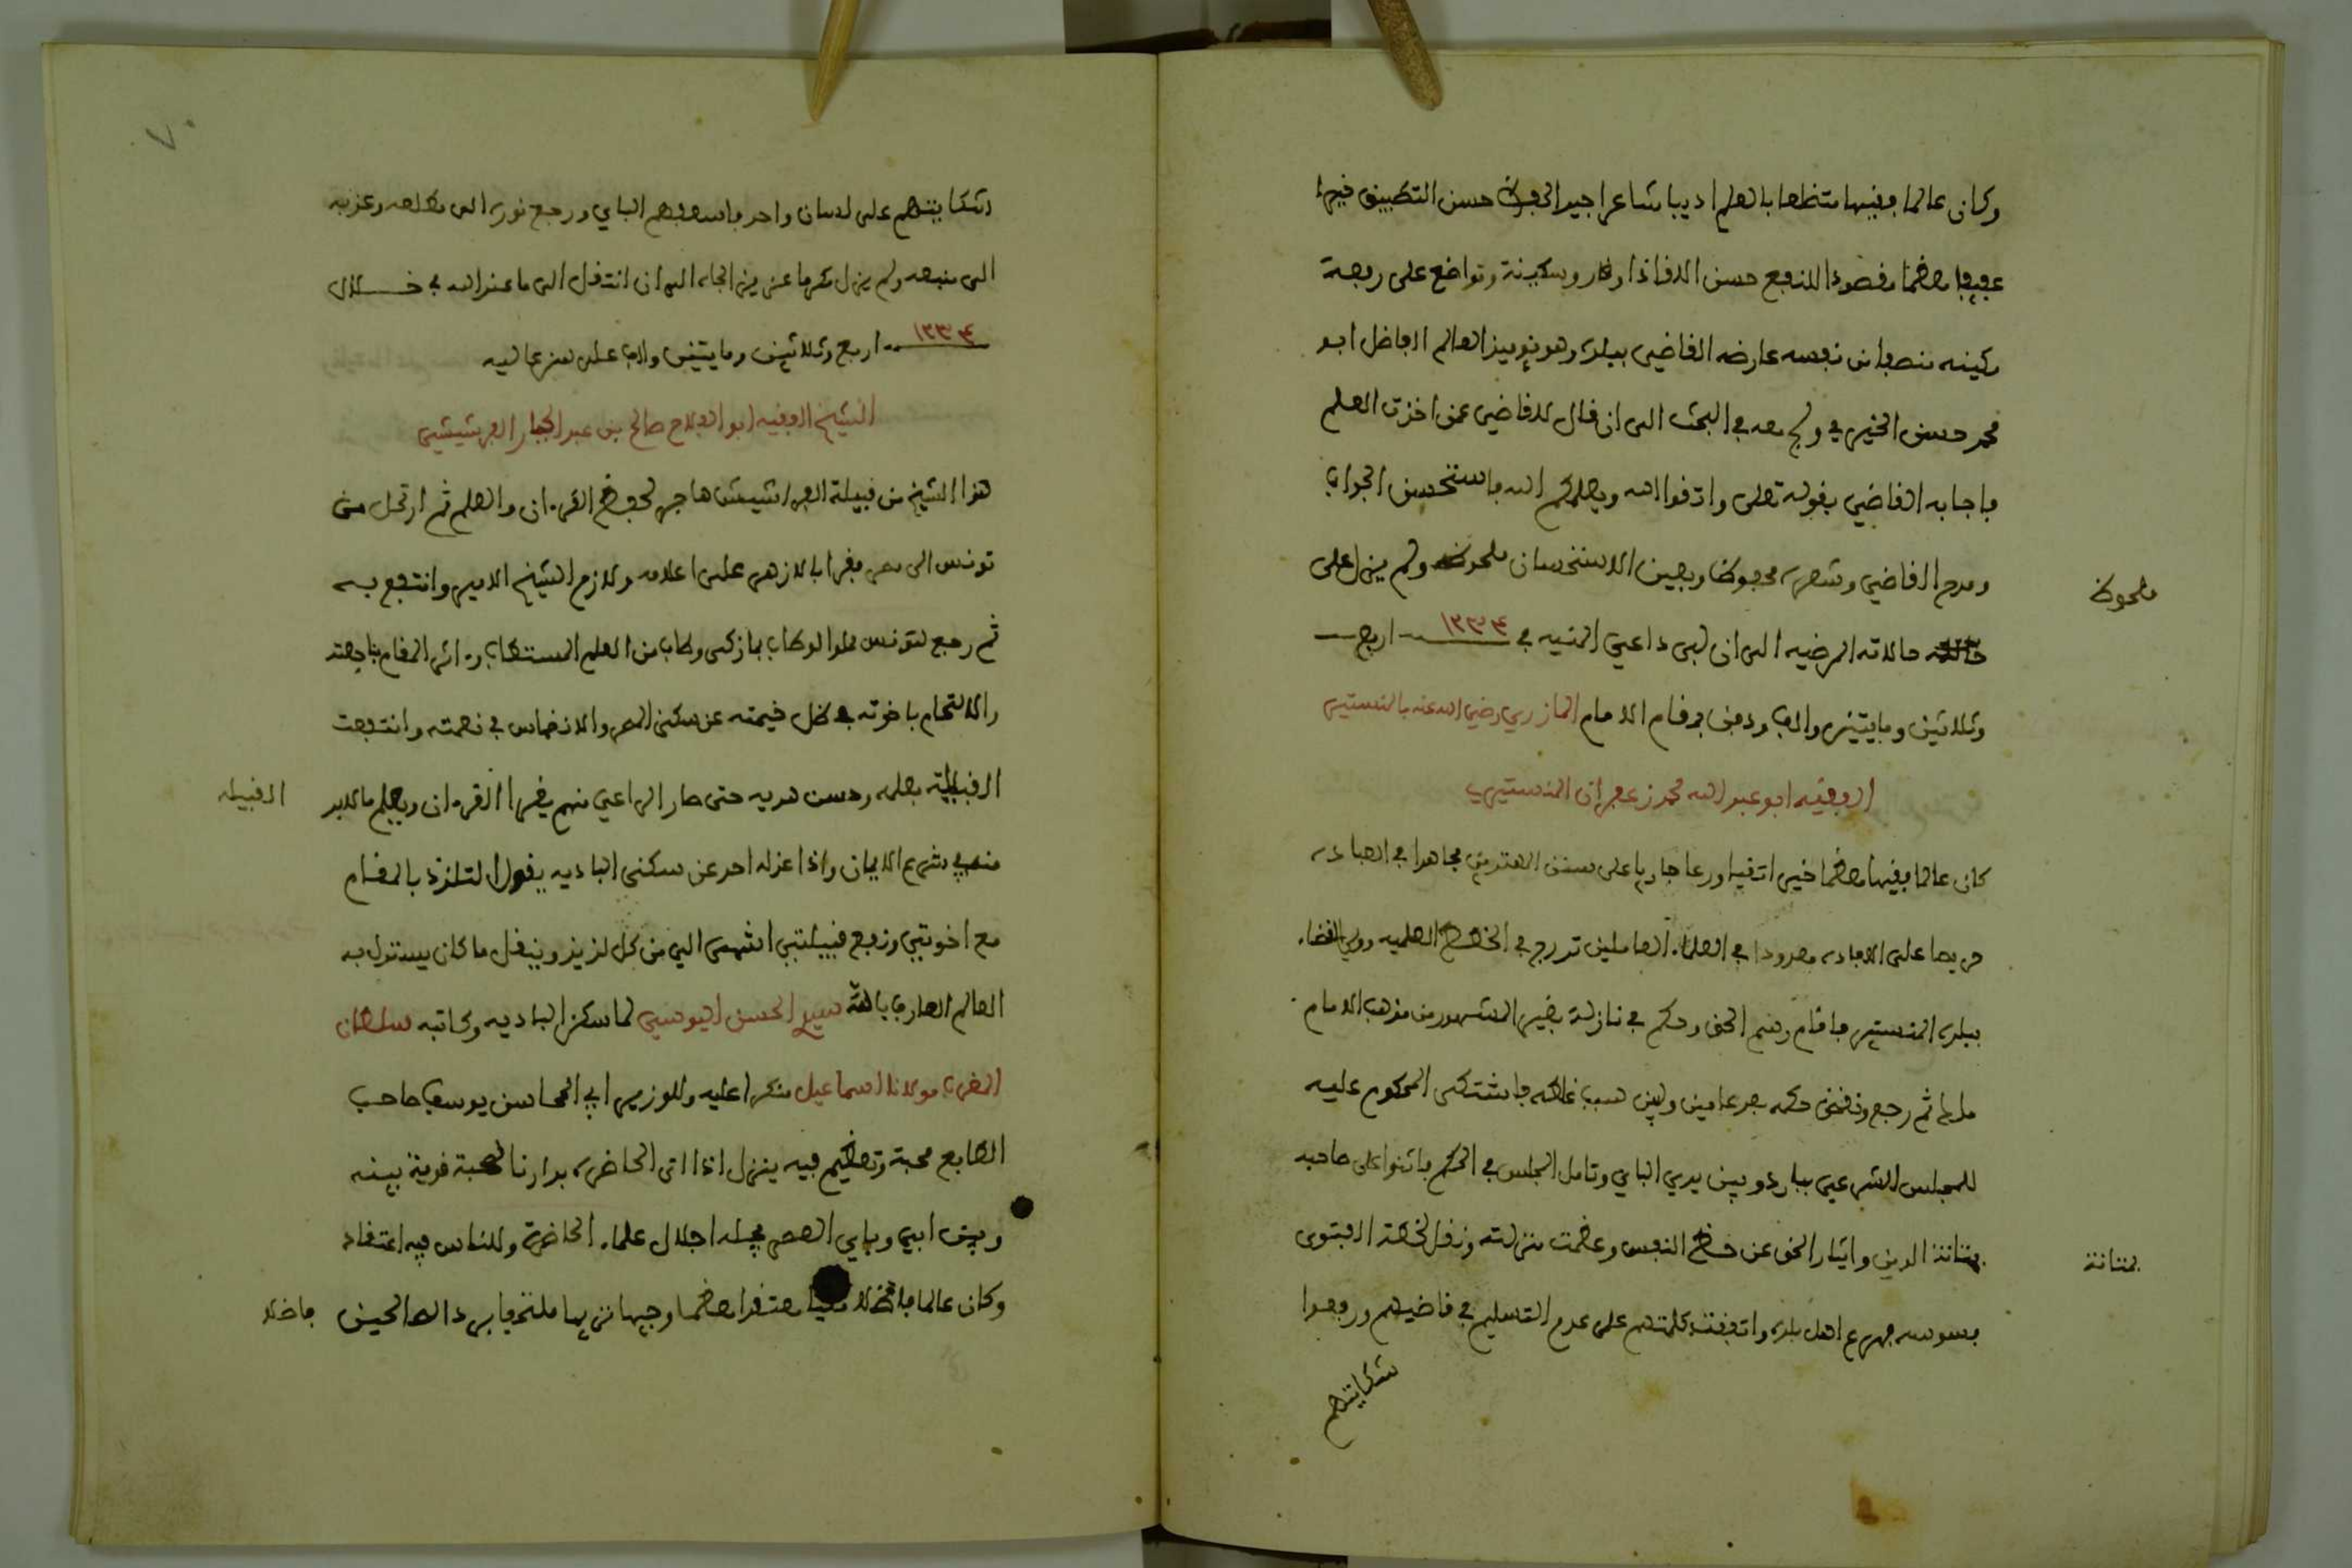 وكان عالما فقيها متظلعا بالعلم اديبا شاعرا جيد الحفظ حسن التطبيق خيرا
عفيفا معظما مقصودا للنفع حسن اللقاء ذا وقار وسكينة وتواضع على رفعة
مكينه منصفا من نفسه عارضه القاضي ببلده وهو يوميذ العالم الفاضل ابو
محمد حسن الخيري ولج معه في البحث الى ان قال للقاضي عمن اخذت العلم
فاجابه القاضي بقوله تعلى واتقوا الله ويعلمكم الله فاستحسن الجواب
ومدح القاضي وشعره محفوظ وبعين الاستحسان ملحوظ ولم يزل على
ملحوظ
حالاته المرضيه الى ان لبى داعي المنيه في ١٢٣٤ اربع
وثلاثين ومايتين والف ودفن بمقام الامام المازري رضي الله عنه بالمنستير
الفقيه ابو عبد الله محمد زعفران المنستيري
كان عالما فقيها معظما خيرا تقيا ورعا جاريا على سنن المهتدين مجاهدا في العباده
حريصا على الافاده معدودا في العلماء العاملين تدرج في الخطط العلميه وولي القضاء
ببلده المنستير فاقام رسم الحق وحكم في نازلة بغير المشهور من مذهب الامام
ملك ثم رجع ونقض حكمه بعد عامين وبين سبب غلطه فاشتكى المحكوم عليه
للمجلس الشرعي بباردو بين يدي الباي وتامل المجلس في الحكم فاثنوا على صاحبه
بمتانة الدين وايثار الحق عن حظ النفس وعظمت منزلته ونقل لخطة الفتوى
بمتانة
بسوسه فهرع اهل بلده واتفقت كلمتهم على عدم التسليم في قاضيهم ورفعوا
شكايتهم
شكايتهم على لسان واحد فاسعفهم الباي ورجع نوره الى مطلعه وعذبه
الى منبعه ولم يزل مكرما عزيز الجاه الى ان انتقل الى ما عند الله في خلال
١٢٣٤ اربع وثلاثين ومايتين والف على سن عاليه
الشيخ الفقيه ابو الفلاح صالح بن عبد الجبار الفرشيشي
هذا الشيخ من قبيلة الفراشيش هاجر لحفظ القرءان والعلم ثم ارتحل من
تونس الى مصر فقرا بالازهر على اعلامه ولازم الشيخ الامير وانتفع به
ثم رجع لتونس مملوا الوطاب بما زكى وطاب من العلم المستطاب وءاثر المقام بناجعته
والالتحام باخوته في ظل خيمته عن سكنى المصر والانغماس في نعمته وانتفعت
القبيلة بعلمه وحسن هديه حتى صار الراعي منهم يقرا القرءان ويعلم ما لابد
القبيله
منه في شرع الايمان واذا عزله احد عن سكنى الباديه يقول التلذذ بالمقام
مع اخوتي ونفع قبيلتي اشهى الي من كل لذيذ وينقل ما كان يستدل به
العالم العارف بالله سيدي الحسن اليوسي لما سكن الباديه وكاتبه سلطان
المغرب مولانا اسماعيل منكرا عليه وللوزير ابي المحاسن يوسف صاحب
الطابع محبة وتعظيم فيه ينزل اذا اتى الحاضره بدارنا لصحبة قوية بينه
وبين ابي وباي العصر يجله اجلال علماء الحاضرة وللناس فيه اعتقاد
وكان عالما معتقدا معظما وجيها نزيها ملتحفا برداء الصالحين
فاضلا